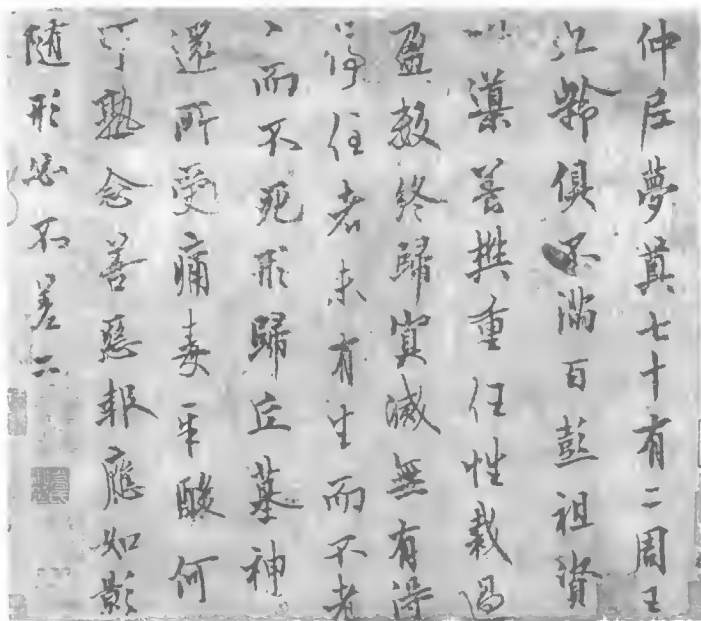 仲尼夢奠七十有二周王
九齡俱不滿百彭祖資
以導養樊重任性裁過
盈數終歸冥滅無有得
停住者未有生而不老
〻而不死形歸丘墓神
還所受痛毒辛酸何
可熟念善惡報應如影
隨形必不差二